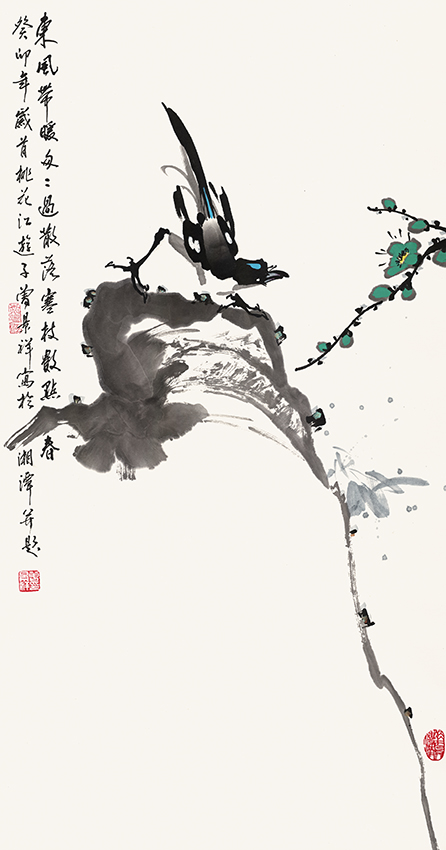 東風帶暖匆々過散落寒枝數點春
癸卯年歲首桃花江遊子曾景祥寫於湘潭并題